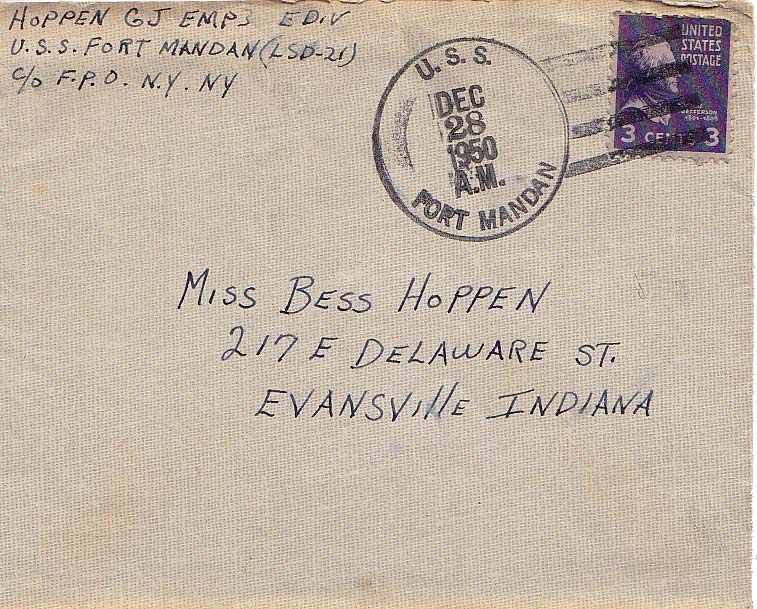 HOPPEN GJ EMP3 E DIV
U.S.S. FORT MANDAN (LSD-21)
C/o F.P.O. N.Y. NY
U.S.S.
DEC
28
1950
A.M.
FORT MANDAN
UNITED
STATES
POSTAGE
JEFFERSON
1801-1809
3 CENTS 3
MISS BESS HOPPEN
217 E DELAWARE ST.
EVANSVIllE INDIANA